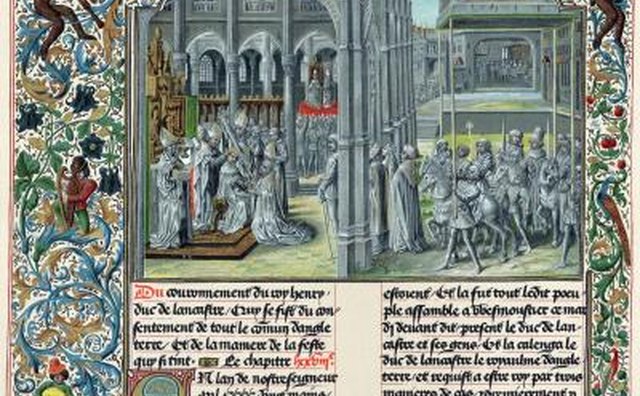 Du couronnement du roy henry
duc de lancastre. Quy se fist du con
sentement de tout le comun dangle
terre. Et de la maniere de la feste
qui si tint. Le chapitre
En lan de nostre seigneur
mil
estoient. Et la fut tout ledit peu
ple assamble a wesmonstier ce mar
dj deuant dit present le duc de lan
castre et ses gens. Et la calenga le
duc de lancastre le royaulme dangle
terre, et requist a estre roy par trois
manieres de cas.